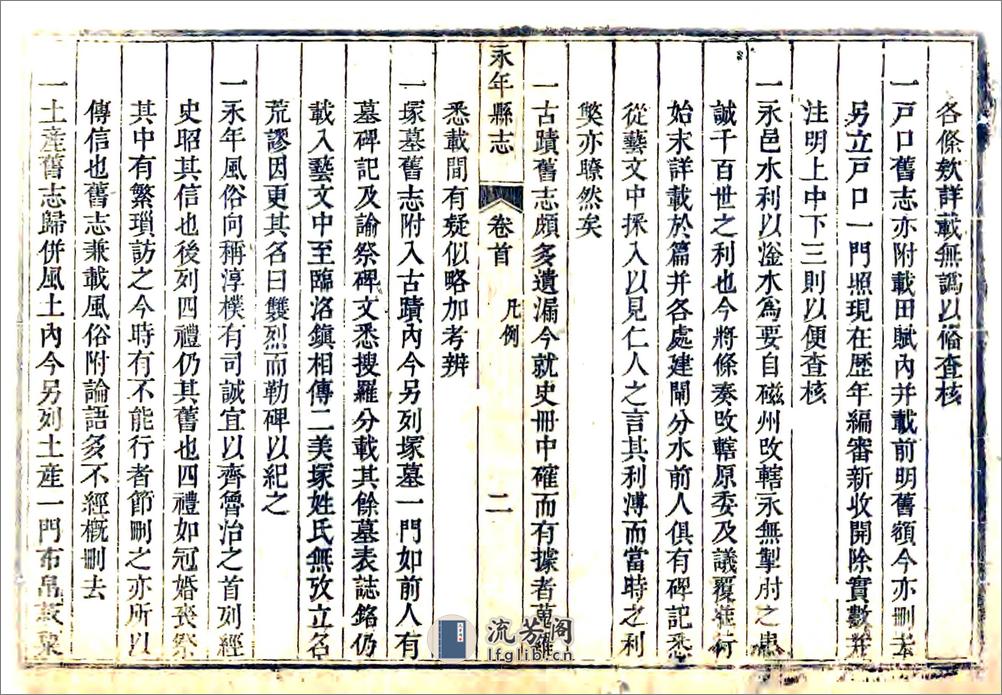 各條欵詳載無譌以俻查核
一戸口舊志亦附載田賦內并載前明舊額今亦刪去
另立戸口一門照現在歴年編審新收開除實數并
注明上中下三則以便查核
一永邑水利以滏水爲要自磁州改轄永無掣肘之患
誠千百世之利也今將條奏改轄原委及議覆並行
始末詳載於篇并各處建閘分水前人俱有碑記悉
從藝文中採入以見仁人之言其利溥而當時之利
獘亦瞭然矣
一古蹟舊志頗多遺漏今就史冊中確而有據者蒐羅
悉載間有疑似略加考辨
永年縣志 卷首 凡例 二
一塚墓舊志附入古蹟內今另列塚墓一門如前人有
墓碑記及諭祭碑文悉搜羅分載其餘墓表誌銘仍
載入藝文中至臨洺鎮相傳二美塚姓氏無攷立名
荒謬因更其名曰雙烈而勒碑以紀之
一永年風俗向稱淳樸有司誠宜以齊魯治之首列經
史昭其信也後列四禮仍其舊也四禮如冠婚喪祭
其中有繁瑣訪之今時有不能行者節刪之亦所以
傳信也舊志兼載風俗附論語多不經概刪去
一土產舊志歸併風土內今另列土產一門布帛菽粟
流芳阁
lfglib.cn